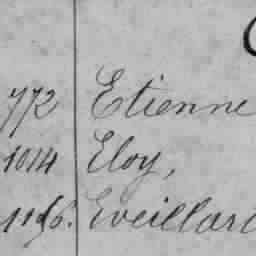 772 Etienne
1014 Eloy,
1156. Eveillard